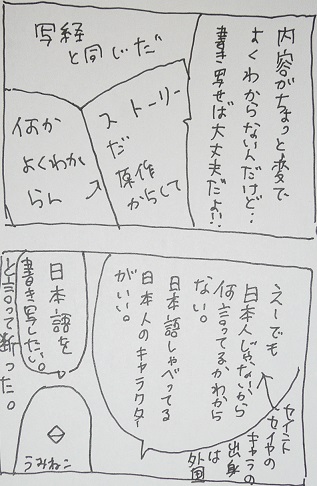 内容がちょっと変で、
よくわからないんだけど‥
書き写せば大丈夫だよ!!
写経
と同じだ
ストーリー
だ
原作
からして
何か
よくわか
らん
えーでも
日本人じゃないから
何言ってるかわから
ない。
日本語しゃべってる
日本人のキャラクター
がいい。
セイント
セイヤの
キャラの
出身
は
外国
日本語を
書き写したい。
と言って断った。
うみねこ